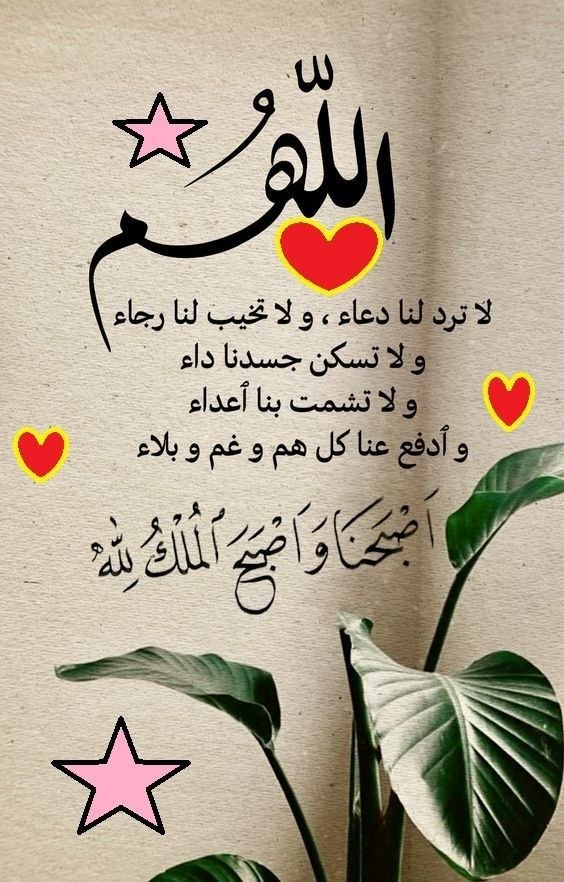 اللّهُم
لا ترد لنا دعاء ، و لا تخيب لنا رجاء
و لا تسكن جسدنا داء
و لا تشمت بنا ٱعداء
و ٱدفع عنا كل هم و غم و بلاء
اَصْبَحْنَا وَاَصْبَحَ ٱلمُلْكُ لِلّٰه